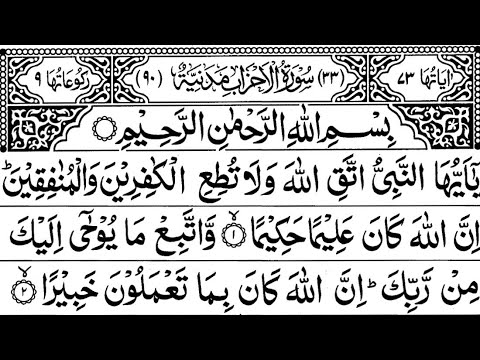 اٰیَاتُهَا ٧٣ (٣٣) سُوْرَةُ الْاَحْزَابِ مَدَنِیَّةٌ (٩٠) رُكُوْعَاتُهَا ٩
بِسْمِ اللهِ الرَّحْمٰنِ الرَّحِیْمِ
یٰۤاَیُّهَا النَّبِیُّ اتَّقِ اللهَ وَلَا تُطِعِ الْكٰفِرِیْنَ وَالْمُنٰفِقِیْنَ ؕ
اِنَّ اللهَ كَانَ عَلِیْمًا حَكِیْمًا ۙ﴿١﴾ وَّاتَّبِعْ مَا یُوْحٰۤی اِلَیْكَ
مِنْ رَّبِّكَ ؕ اِنَّ اللهَ كَانَ بِمَا تَعْمَلُوْنَ خَبِیْرًا ۙ﴿٢﴾